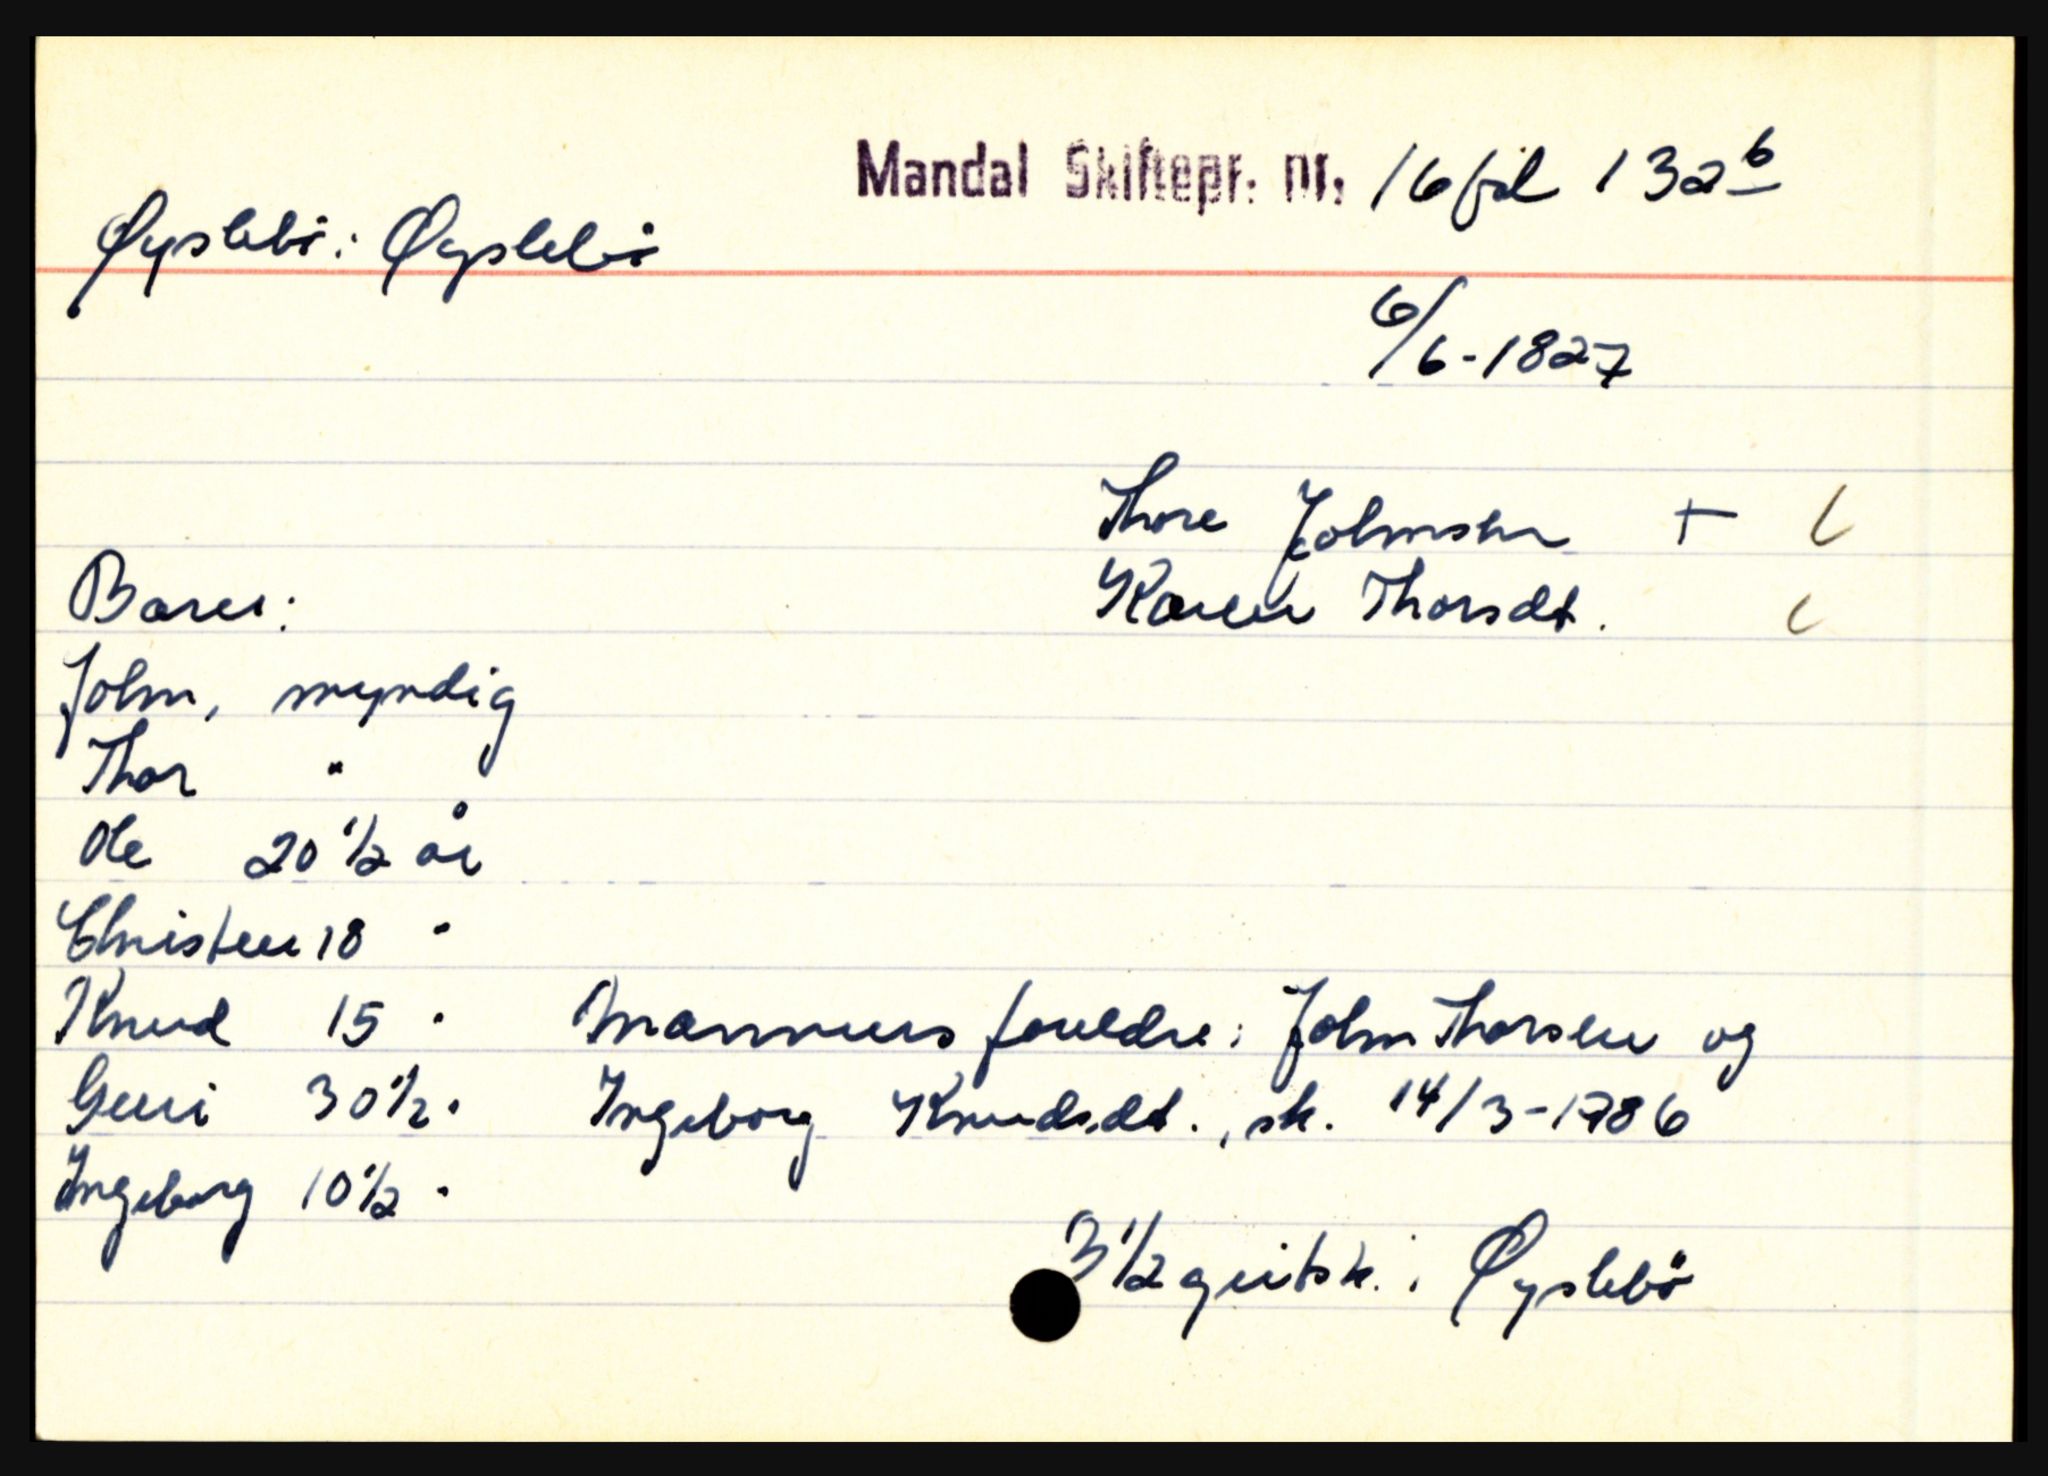 Mandal Skiftepr. nr. 16 fol 132 b
Øyslebö: Øyslebö
6/6-1827
Thore Johnsen +
Karen Thorsdt.
Barn:
John, myndig
Thor "
Ole 20 1/2 år
Christen 18 "
Knud 15 "
Guri 30 1/2 "
Ingeborg 10 1/2 "
Mannens foreldre: John Thorsen og
Ingeborg Knudsdt., sk. 14/3-1786
3 1/2 geitsk. i Øyslebö